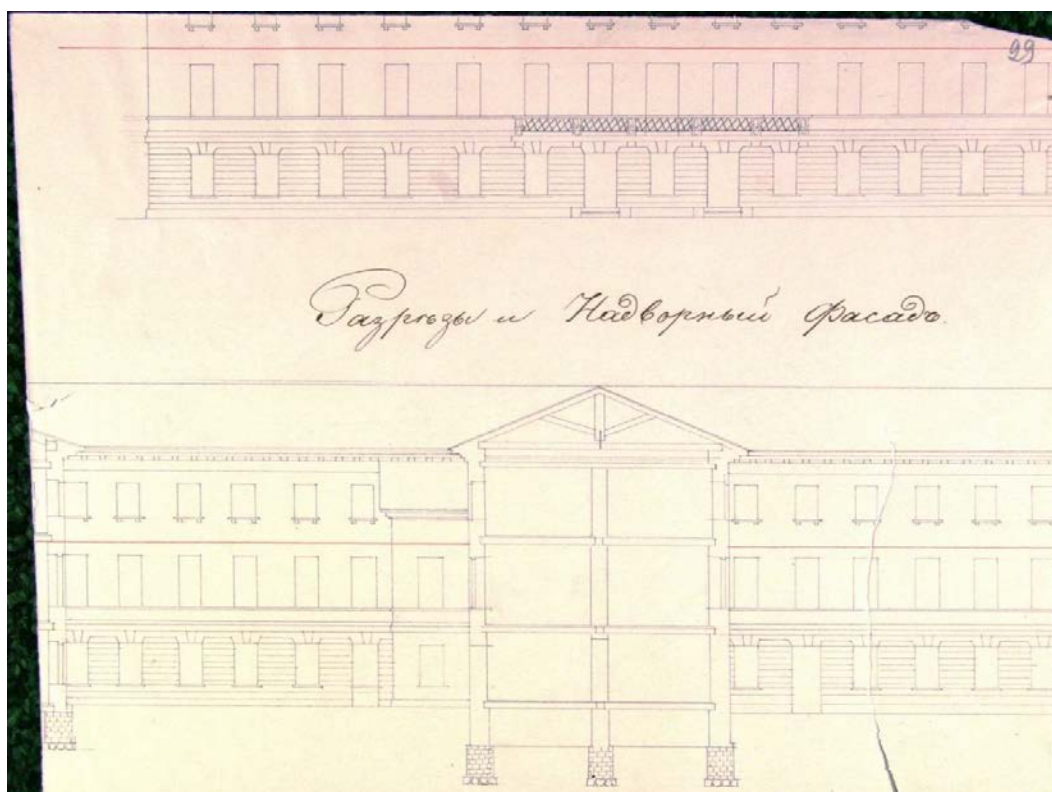 99
Разрѣзы и Надворный Фасадъ.